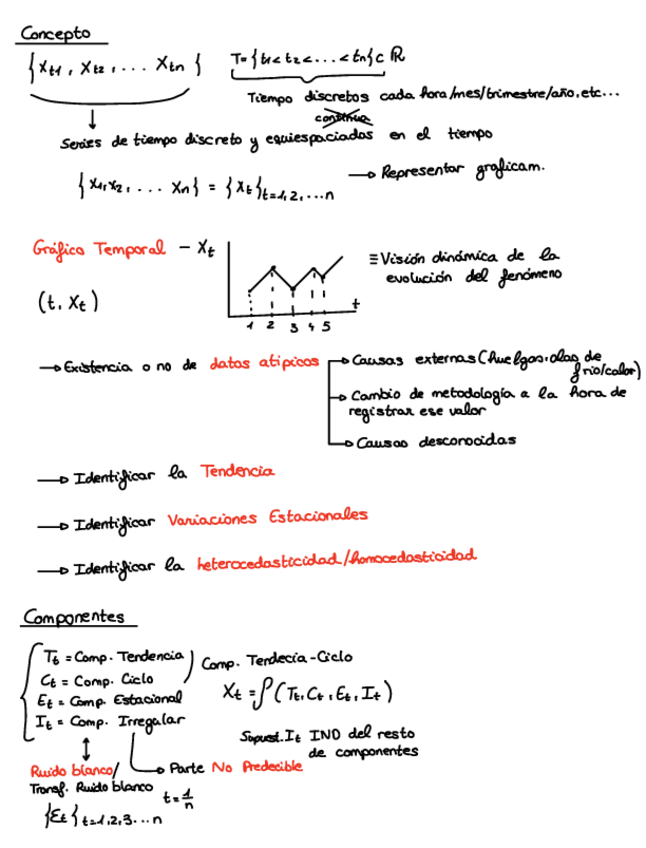 Concepto
{Xt1, Xt2, ... Xtn} T={t1<t2<...<tn}⊂ℝ
Tiempo discretos cada hora/mes/trimestre/año, etc...
continua
Series de tiempo discreto y equiespaciados en el tiempo
{X1, X2, ... Xn} = {Xt}t=1,2,...n → Representar graficam.
Gráfico Temporal - Xt
(t, Xt)
t
1 2 3 4 5
≡ Visión dinámica de la
evolución del fenómeno
→ Existencia o no de datos atípicos → Causas externas (huelgas, olas de
frío/calor)
→ Cambio de metodología a la hora de
registrar ese valor
→ Causas desconocidas
→ Identificar la Tendencia
→ Identificar Variaciones Estacionales
→ Identificar la heterocedasticidad/homocedasticidad
Componentes
Tt = Comp. Tendencia
Ct = Comp. Ciclo
Et = Comp. Estacional
It = Comp. Irregular
Comp. Tendecia-Ciclo
Xt = f(Tt, Ct, Et, It)
Supust. It IND del resto
de componentes
Ruido blanco/
Transf. Ruido blanco
→ Parte No Predecible
t=1/n
{Ɛt}t=1,2,3...n